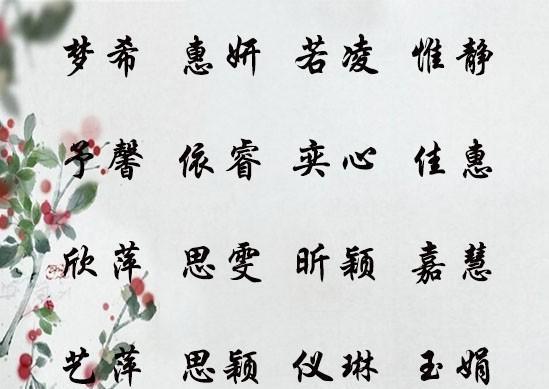 梦希 惠妍 若凌 惟静
予馨 依睿 奕心 佳惠
欣萍 思雯 昕颖 嘉慧
艺萍 思颖 仪琳 玉娟